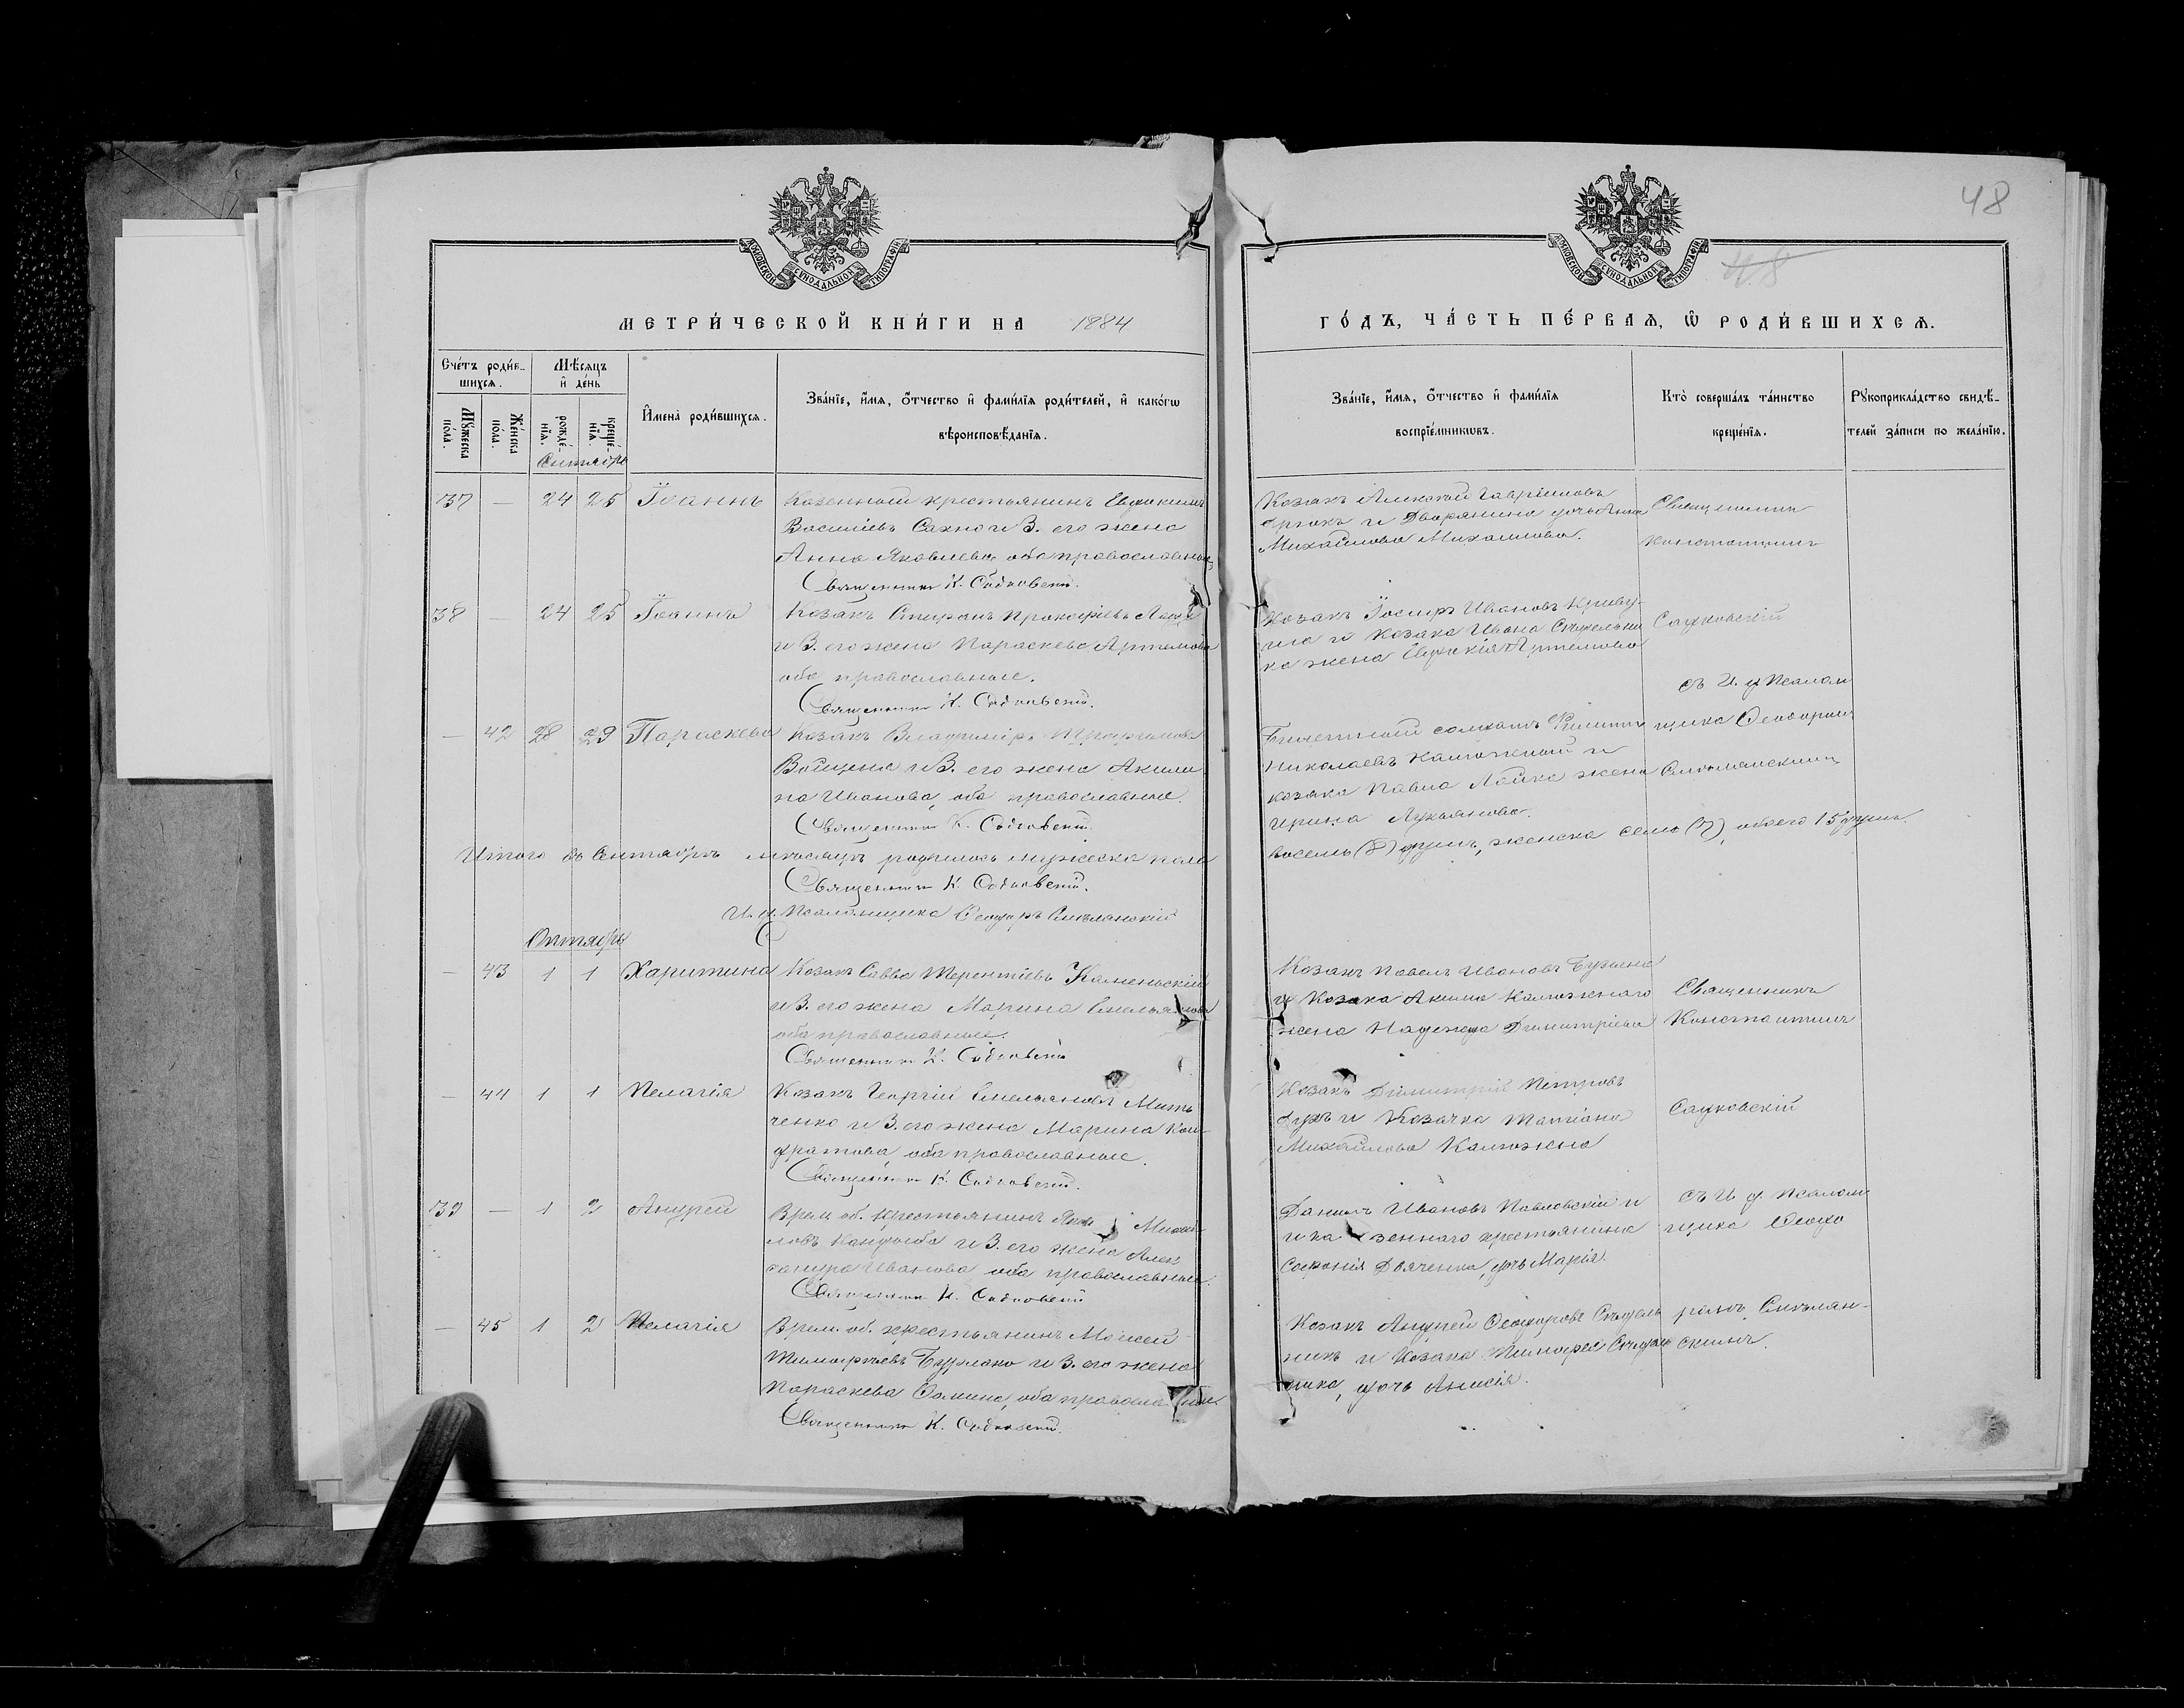 48
МОСКОВСКОЙ СѴНОДАЛЬНОЙ ТИПОГРАФІИ
МОСКОВСКОЙ СѴНОДАЛЬНОЙ ТИПОГРАФІИ
48
МЕТРИ́ЧЕСКОЙ КНИ́ГИ НА 1884
ГО́ДЪ, ЧА́СТЬ ПЕ́РВАѦ, Ѿ РОДИ́ВШИХСѦ.
Сче́тъ роди́в-
шихсѧ.
Мѣ́сѧцъ
и҆ де́нь
Мꙋ́жеска
по́ла.
Же́нска
по́ла.
рожде́-
нїѧ.
креще́-
нїѧ.
И҆мена̀ роди́вшихсѧ.
Зва́нїе, и҆́мѧ, ѻ҆́тчество и҆ фами́лїѧ роди́телей, и҆ како́гѡ
вѣроисповѣ́данїѧ.
Зва́нїе, и҆́мѧ, ѻ҆́тчество и҆ фами́лїѧ
воспрїе́мникѡвъ.
Кто̀ соверша́лъ та́инство
креще́нїѧ.
Рꙋкоприкла́дство свидѣ́-
телей за́писи по жела́нїю.
Сентябрь
37 — 24 25 Іоаннъ Казенный крестьянинъ Евфимій
Василіевъ Сахно и З. его жена
Анна Яковлева оба православные
Священникъ К. Садковскій.
Козакъ Алексій Гавріиловъ
и Дворянина дочь Анна
Михайлова
Священникъ
Константинъ
38 — 24 25 Іоаннъ Козакъ Стефанъ Прокофіевъ
и З. его жена Параскева Артемова
оба православные.
Священникъ К. Садковскій.
Козакъ Іосифъ Ивановъ Криву-
ша и Козака Ивана Стрельни
ка жена Евдокія Артемова
Садковскій
— 42 28 29 Параскева Козакъ Владиміръ
Войцена и З. его жена Акили
на Иванова, оба православные.
Священникъ К. Садковскій.
Билетный солдатъ Филиппъ
Николаевъ Калюжный и
козака Павла Лайка жена
Ирина Лукьянова.
съ И. д. Псалом
щика Ѳеодоромъ
Смѣлянскимъ
Итого въ Сентябрѣ мѣсяцѣ родилось мужеска пола
восемь (8) душъ, женска семь (7), обоего 15 душъ.
Священникъ К. Садковскій.
И. д. Псаломщика Ѳеодоръ Смѣлянскій
Октябрь
— 43 1 1 Харитина Козакъ Савва Терентіевъ Каменьскій
и З. его жена Марина Емельянова
оба православные.
Священникъ К. Садковскій
Козакъ Павелъ Ивановъ
и Козака Акима Калюжнаго
жена Надежда Димитріева
Священникъ
Константинъ
— 44 1 1 Пелагія Козакъ Георгій Емельяновъ Мить
ченко и З. его жена Марина Кон-
дратова оба православные.
Священникъ К. Садковскій.
Козакъ Димитрій Петровъ
и Козачка Татіана
Михайлова Калюжна
Садковскій
39 — 1 2 Андрей Врем. об. крестьянинъ Михаи-
ловъ Кандыба и З. его жена Алек
сандра Иванова оба православные.
Священникъ К. Садковскій
Даніилъ Ивановъ Павловскій и
и казеннаго крестьянина
Софонія Дяченка, дочь Марія.
съ И. д. Псалом
щика Ѳеодо
— 45 1 2 Пелагія Врем. об. крестьянинъ Моисей
Тимофѣевъ Бурлака и З. его жена
Параскева Ѳомина, оба православные
Священникъ К. Садковскій.
Козакъ Андрей Ѳеодоровъ Стрѣль
никъ и Козака Тимофея Стрѣль
ника, дочь Анисія.
ромъ Смѣлян-
скимъ.